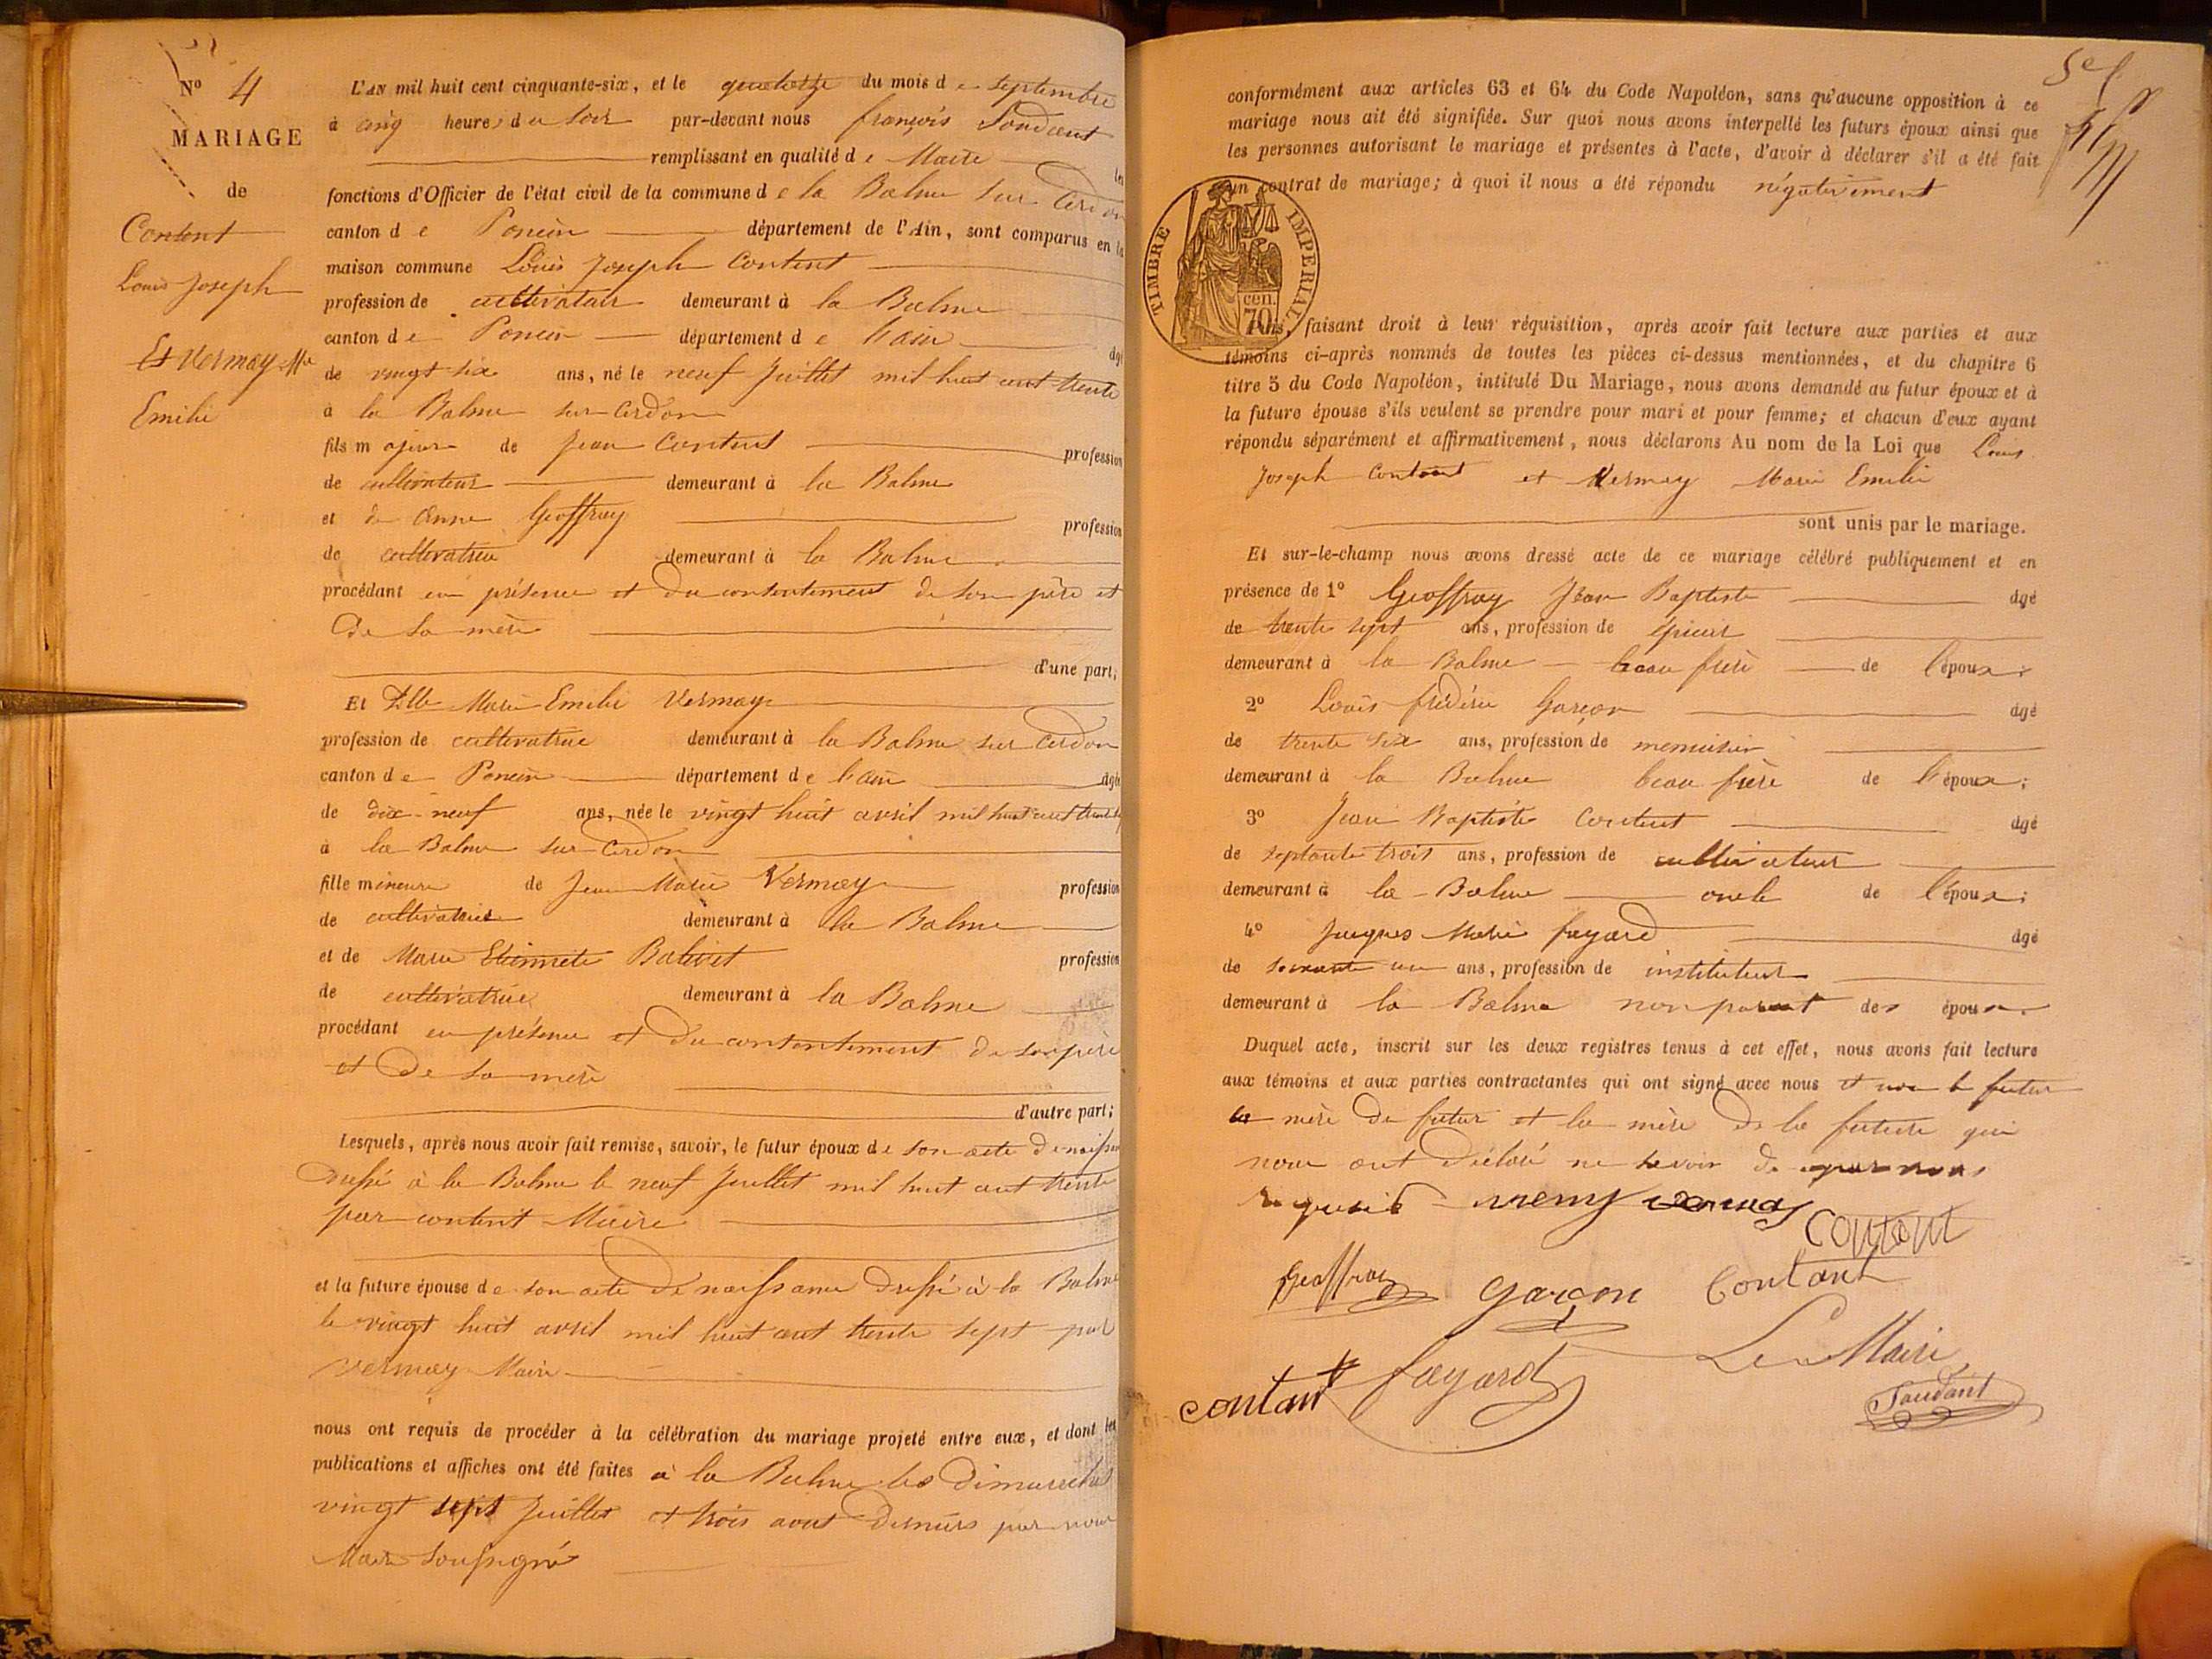 N° 4
MARIAGE
de
Contant
Louis Joseph
Et Vermay Mie
Emilie
L'AN mil huit cent cinquante-six, et le quatorze du mois de septembre
à cinq heures du soir par-devant nous françois Soudant
remplissant en qualité de Maire les
fonctions d'Officier de l'état civil de la commune de la Balme sur Cerdon
canton de Poncin département de l'Ain, sont comparus en la
maison commune Louis Joseph Contant
profession de cultivateur demeurant à la Balme
canton de Poncin département de l'ain âgé
de vingt six ans, né le neuf Juillet mil huit cent trente
à la Balme sur Cerdon
fils majeur de Jean Contant profession
de cultivateur demeurant à la Balme
et de Anne Geoffray profession
de cultivatrice demeurant à la Balme
procédant en présence et du consentement de son père et
de sa mère
d'une part;
Et Dlle Marie Emilie Vermay
profession de cultivatrice demeurant à la Balme sur Cerdon
canton de Poncin département de l'ain âgée
de dix-neuf ans, née le vingt huit avril mil huit cent trente sept
à la Balme sur Cerdon
fille mineure de Jean Marie Vermay profession
de cultivateur demeurant à la Balme
et de Marie Etiennete Balivet profession
de cultivatrice demeurant à la Balme
procédant en présence et du consentement de son père
et de sa mère
d'autre part;
Lesquels, après nous avoir fait remise, savoir, le futur époux de son acte de naissance
dressé à la Balme le neuf Juillet mil huit cent trente
par contant Maire
et la future épouse de son acte de naissance dressé à la Balme
le vingt huit avril mil huit cent trente sept par
Vermay Maire
nous ont requis de procéder à la célébration du mariage projeté entre eux, et dont les
publications et affiches ont été faites à la Balme les dimanches
vingt sept Juillet et trois aout derniers par nous
Maire soussigné
conformément aux articles 63 et 64 du Code Napoléon, sans qu'aucune opposition à ce
mariage nous ait été signifiée. Sur quoi nous avons interpellé les futurs époux ainsi que
les personnes autorisant le mariage et présentes à l'acte, d'avoir à déclarer s'il a été fait
un contrat de mariage; à quoi il nous a été répondu négativement
TIMBRE IMPERIAL
cen.
70
Puis, faisant droit à leur réquisition, après avoir fait lecture aux parties et aux
témoins ci-après nommés de toutes les pièces ci-dessus mentionnées, et du chapitre 6
titre 5 du Code Napoléon, intitulé Du Mariage, nous avons demandé au futur époux et à
la future épouse s'ils veulent se prendre pour mari et pour femme; et chacun d'eux ayant
répondu séparément et affirmativement, nous déclarons Au nom de la Loi que Louis
Joseph Contant et Vermay Marie Emilie
sont unis par le mariage.
Et sur-le-champ nous avons dressé acte de ce mariage célébré publiquement et en
présence de 1° Geoffray Jean Baptiste âgé
de trente sept ans, profession de épicier
demeurant à la Balme beau frère de l'époux;
2° Louis frédéric Garçon âgé
de trente six ans, profession de menuisier
demeurant à la Balme beau frère de l'époux;
3° Jean Baptiste Contant âgé
de septante trois ans, profession de cultivateur
demeurant à la Balme oncle de l'époux;
4° Jacques Marie fayard âgé
de soixante un ans, profession de instituteur
demeurant à la Balme non parent des époux.
Duquel acte, inscrit sur les deux registres tenus à cet effet, nous avons fait lecture
aux témoins et aux parties contractantes qui ont signé avec nous et non le futur
la mère du futur et la mère de la future qui
nous ont déclaré ne savoir de par nous
requis
Contant
Geoffray Garçon Contant
Le Maire
contant fayard
Soudant